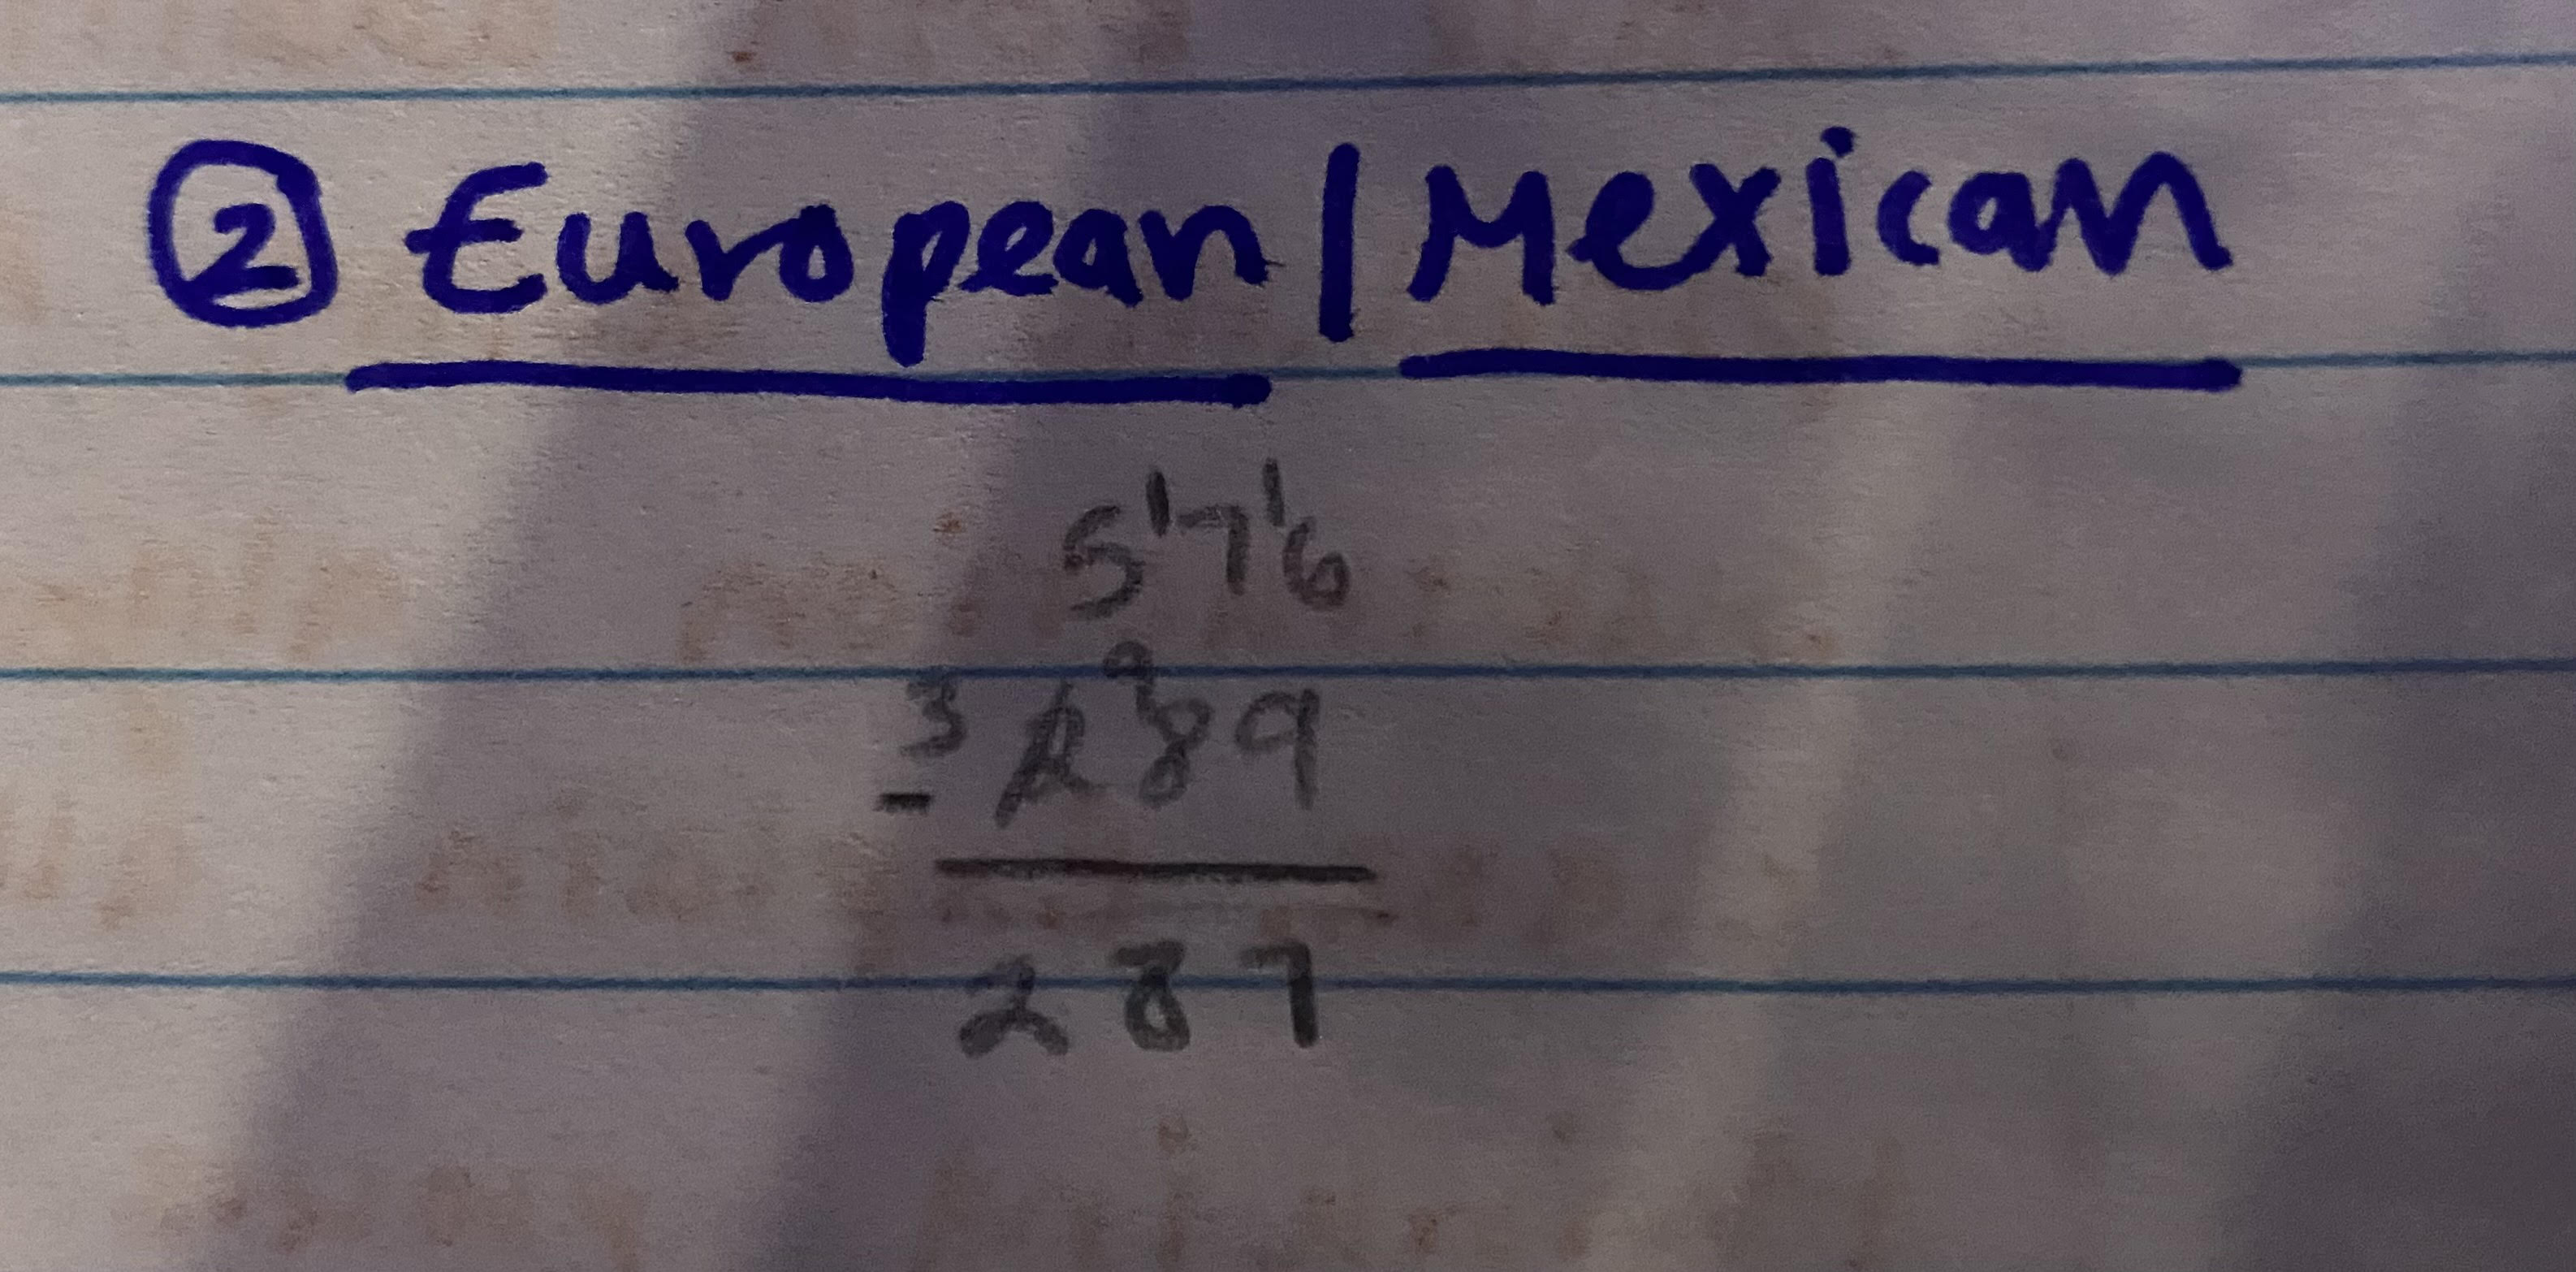 ② European/Mexican
5 ¹7 ¹6
- 3 2 9 8 9
2 8 7